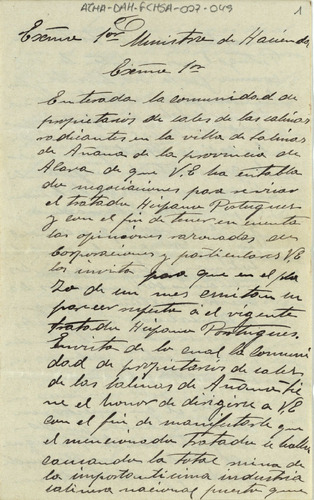 ATHA-DAH-FCHSA-007-049
1
Exmo Sor Ministro de Hacienda
Exmo Sor
Enterada la comunidad de
propietarios de sales de las salinas
radicantes en la villa de Salinas
de Añana de la provincia de
Alava de que V.E ha entabla
do negociaciones para revisar
el tratado Hispano Portugues
y con el fin de tener en cuenta
las opiniones razonadas de
corporaciones y particulares V.E
los invita para que en el pla
zo de un mes emitan su
parecer respecto a el vigente
tratado Hispano Portugues.
En vista de lo cual la comuni
dad de propietarios de sales
de las Salinas de Añana tie
ne el honor de dirigirse a V.E
con el fin de manifestarle que
el mencionado tratado
causando la total ruina de
la importantisima industria
salinera nacional puesto que